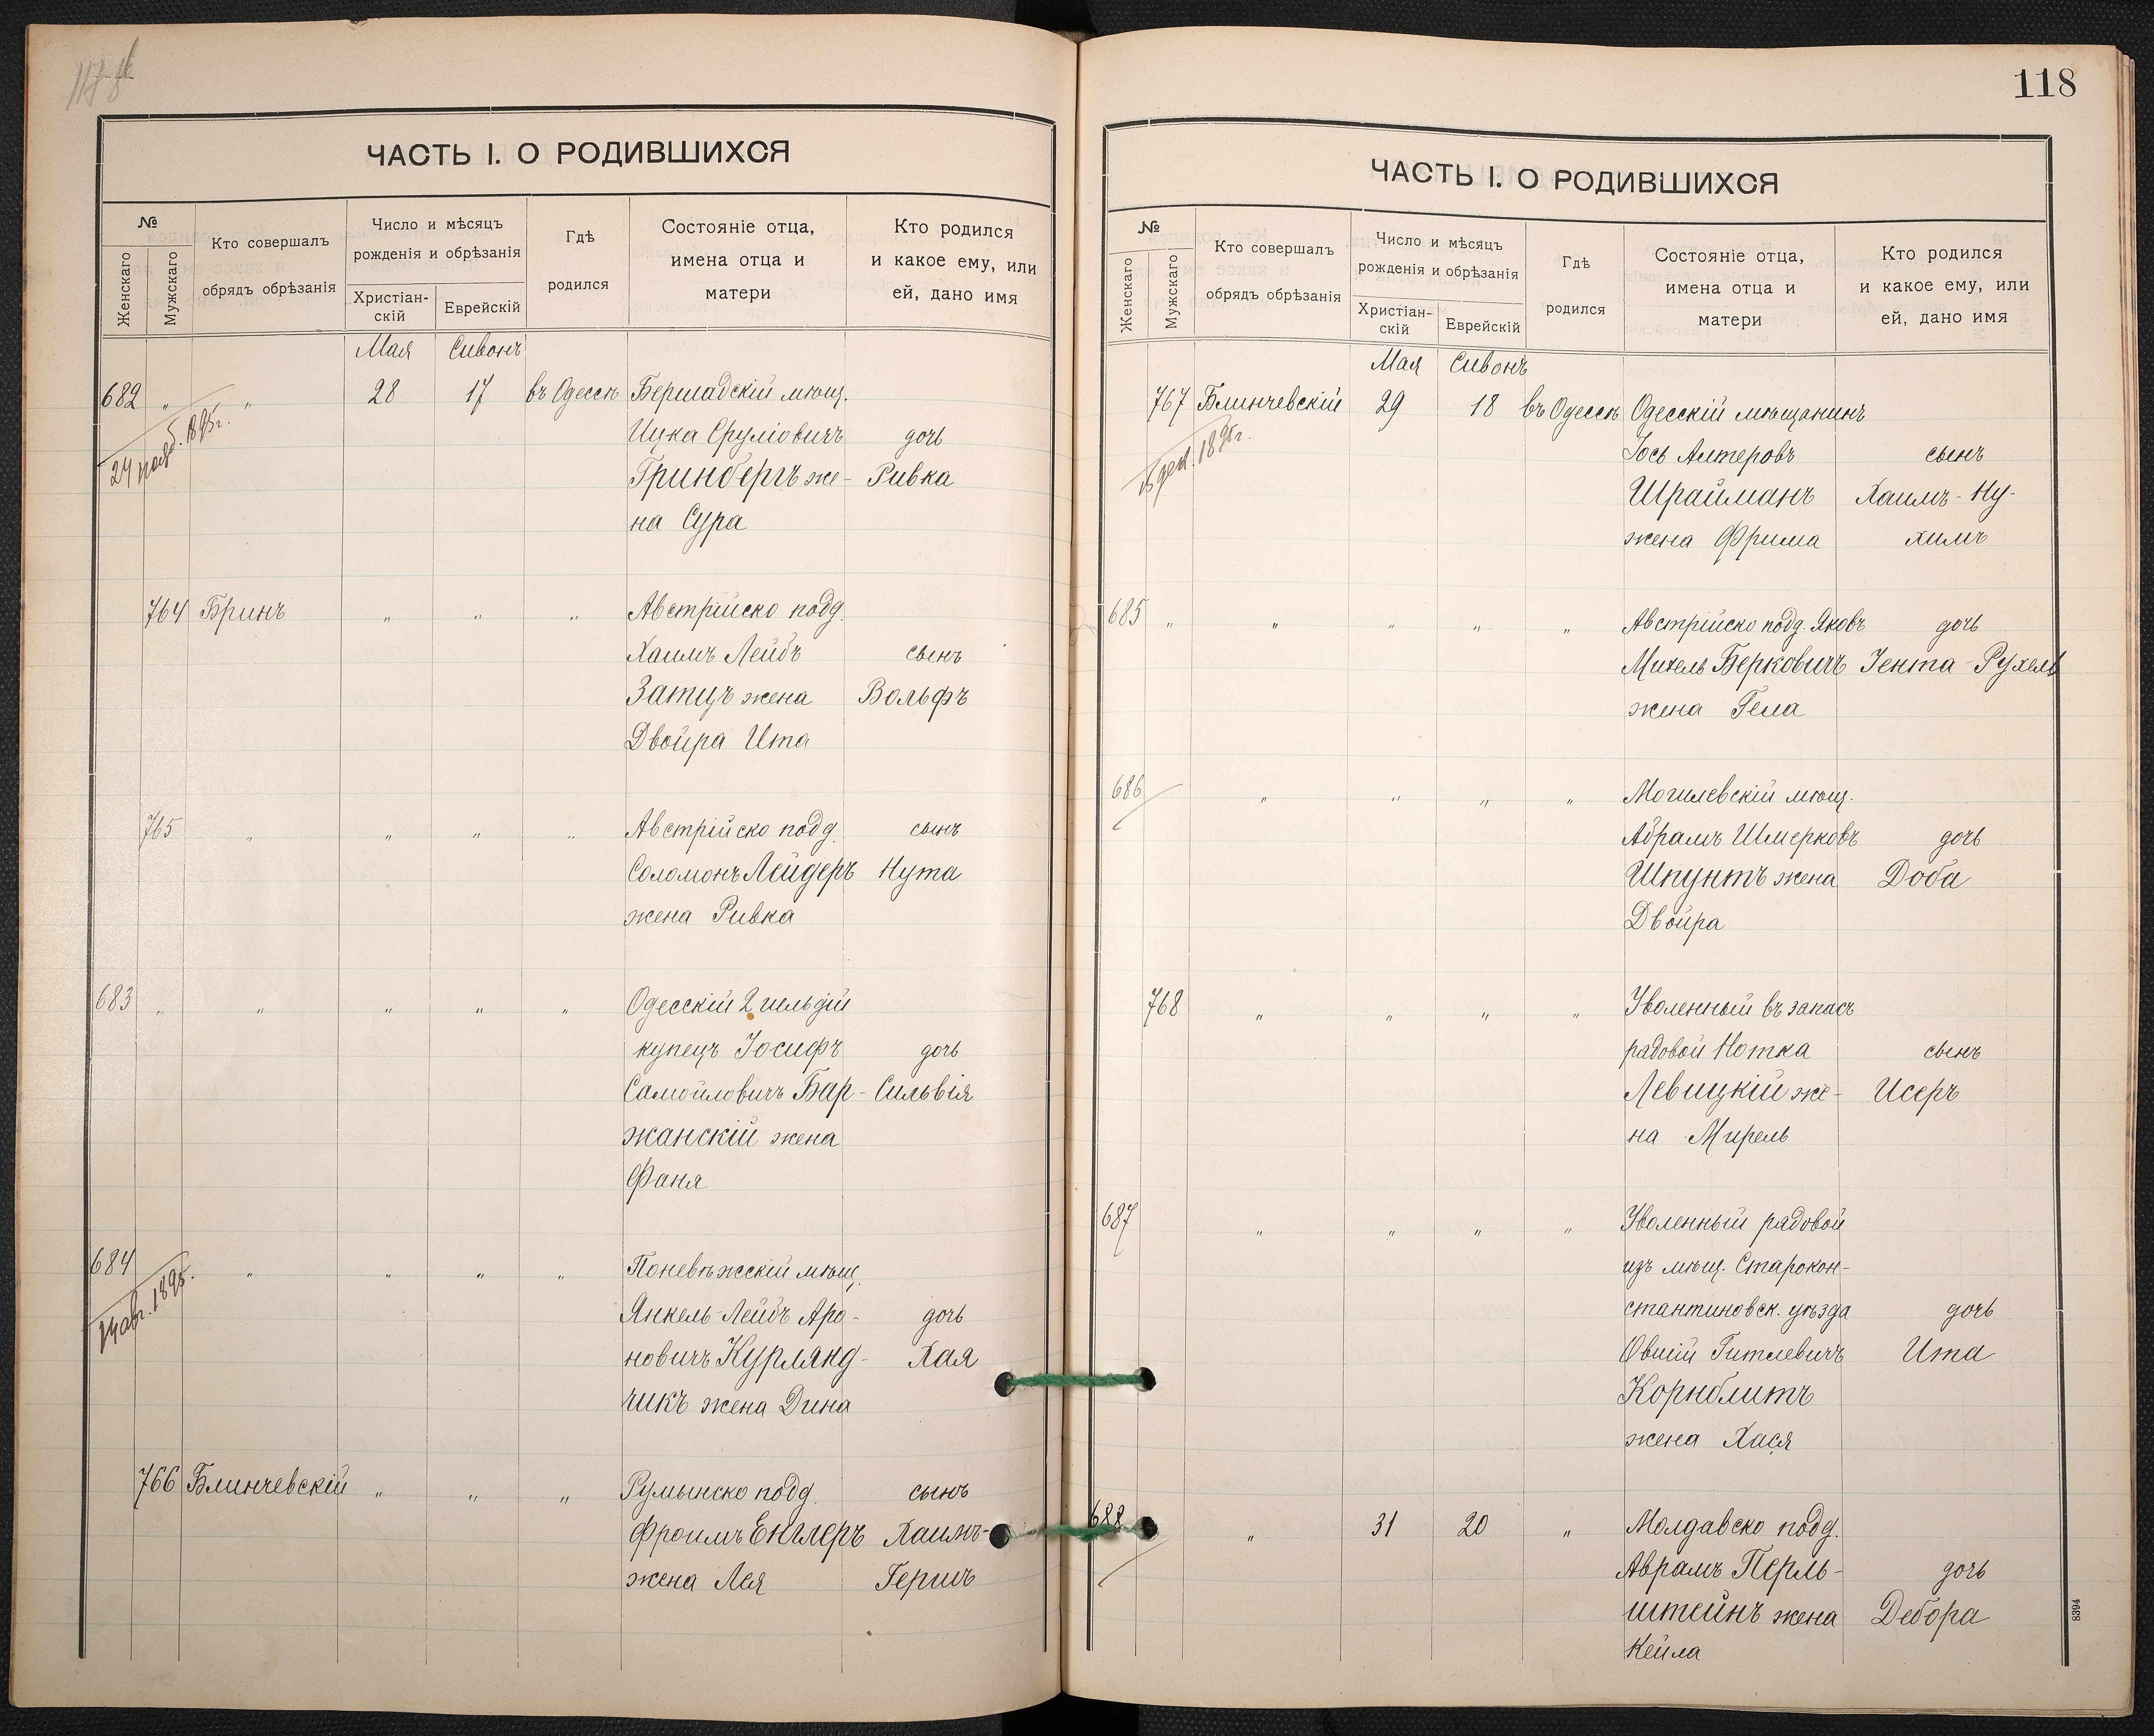 118
ЧАСТЬ I. О РОДИВШИХСЯ
№
Женскаго
Мужскаго
Кто совершалъ
обрядъ обрѣзанія
Число и мѣсяцъ
рожденія и обрѣзанія
Христіан-
скій
Еврейскій
Гдѣ
родился
Состояніе отца,
имена отца и
матери
Кто родился
и какое ему, или
ей, дано имя
Мая Сивонъ
682 " " 28 17 въ Одессѣ Бершадскій мѣщ.
24 нояб. 1895г.
Ицка Сруліовичъ дочь
Гринбергъ же- Ривка
на Сура
764 Бринъ " " " Австрійско подд.
Хаимъ Лейбъ сынъ
Затцъ жена Вольфъ
Двойра Ита
765 " " " " Австрійско подд. сынъ
Соломонъ Лейдеръ Нута
жена Ривка
683 " " " " " Одесскій 2 гильдіи
купецъ Іосифъ дочь
Самойловичъ Бар- Сильвія
жанскій жена
Фаня
684 " " " " Поневѣжскій мѣщ.
14 авг. 1895.
Янкель-Лейбъ Аро- дочь
новичъ Курлянд- Хая
чикъ жена Дина
766 Блинчевскій " " " Румынско подд. сынъ
Фроимъ Енглеръ Хаимъ-
жена Лея Гершъ
ЧАСТЬ I. О РОДИВШИХСЯ
№
Женскаго
Мужскаго
Кто совершалъ
обрядъ обрѣзанія
Число и мѣсяцъ
рожденія и обрѣзанія
Христіан-
скій
Еврейскій
Гдѣ
родился
Состояніе отца,
имена отца и
матери
Кто родился
и какое ему, или
ей, дано имя
Мая Сивонъ
767 Блинчевскій 29 18 въ Одессѣ Одесскій мѣщанинъ
дек. 1895г.
Іось Алтеровъ сынъ
Шрайманъ Хаимъ-Ну-
жена Фрима химъ
685 " " " " " Австрійско подд. Яковъ дочь
Михель Берковичъ Іента-Рухель
жена Гела
686 " " " " Могилевскій мѣщ.
Абрамъ Шмерковъ дочь
Шпунтъ жена Доба
Двойра
768 " " " " Уволенный въ запасъ
рядовой Нотка сынъ
Левицкій же- Исеръ
на Мирель
687 " " " " Уволенный рядовой
изъ мѣщ. Старокон-
стантиновск. уѣзда дочь
Овшій Гитлевичъ Ита
Корнблитъ
жена Хася
688 " 31 20 " Молдавско подд.
Аврамъ Перль- дочь
штейнъ жена Дебора
Кейла
8394